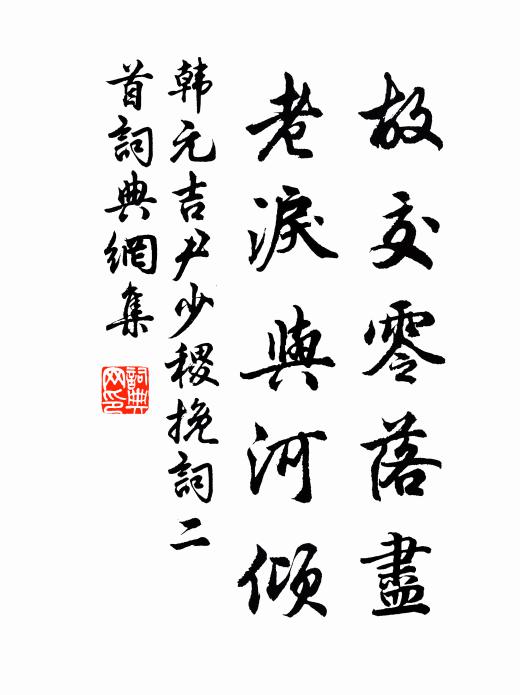 故交零落盡
老淚與河傾
韩元吉尹少稷挽詞二
首詞典網集
詞典
网印